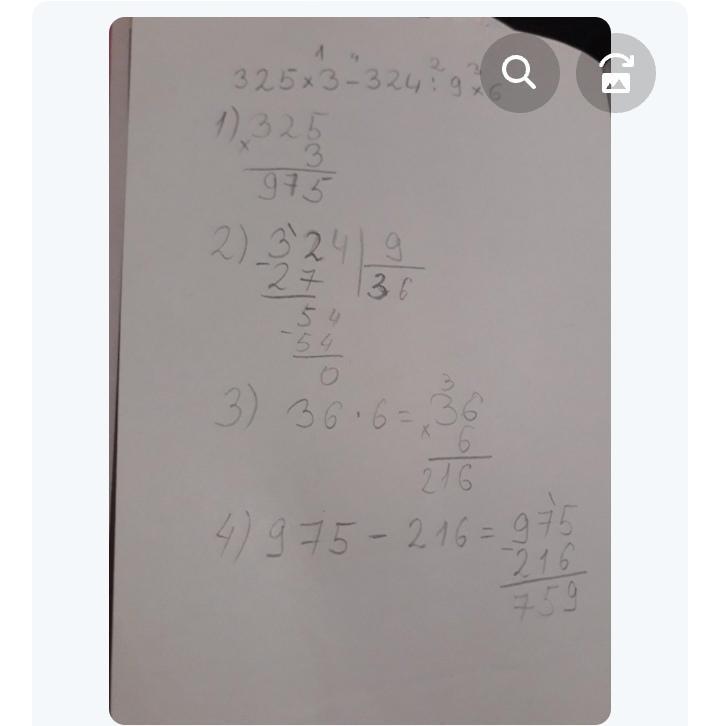 325×3-324:9×6
1) 325
× 3
975
2) 324 | 9
- 27 | 36
54
- 54
0
3) 36 · 6 = 36
× 6
216
4) 975 - 216 = 975
- 216
759